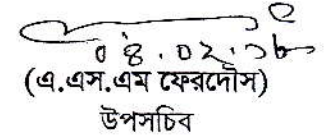 ০৪.০২.১৮
(এ.এস.এম ফেরদৌস)
উপসচিব